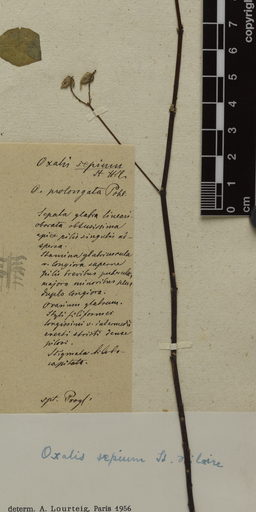 Oxalis sepium
St Hil.
O. prolongata Pohl
Sepala glabra lineari
obovata obtusissima
apice pilis singulis
Stamina glabriuscula
longiora superne
pilis brevibus
majora minoribus plus
duplo longiora.
Ovarium glabrum.
Styli filiformes
longissimi v. intermedii
erecti stricti dense
pilosi.
Stigmata bilobo-
capitata.
Oxalis sepium St. Hilaire
determ. A. Lourteig, Paris 1956
0 1 2 3 4 5 6 7
cm